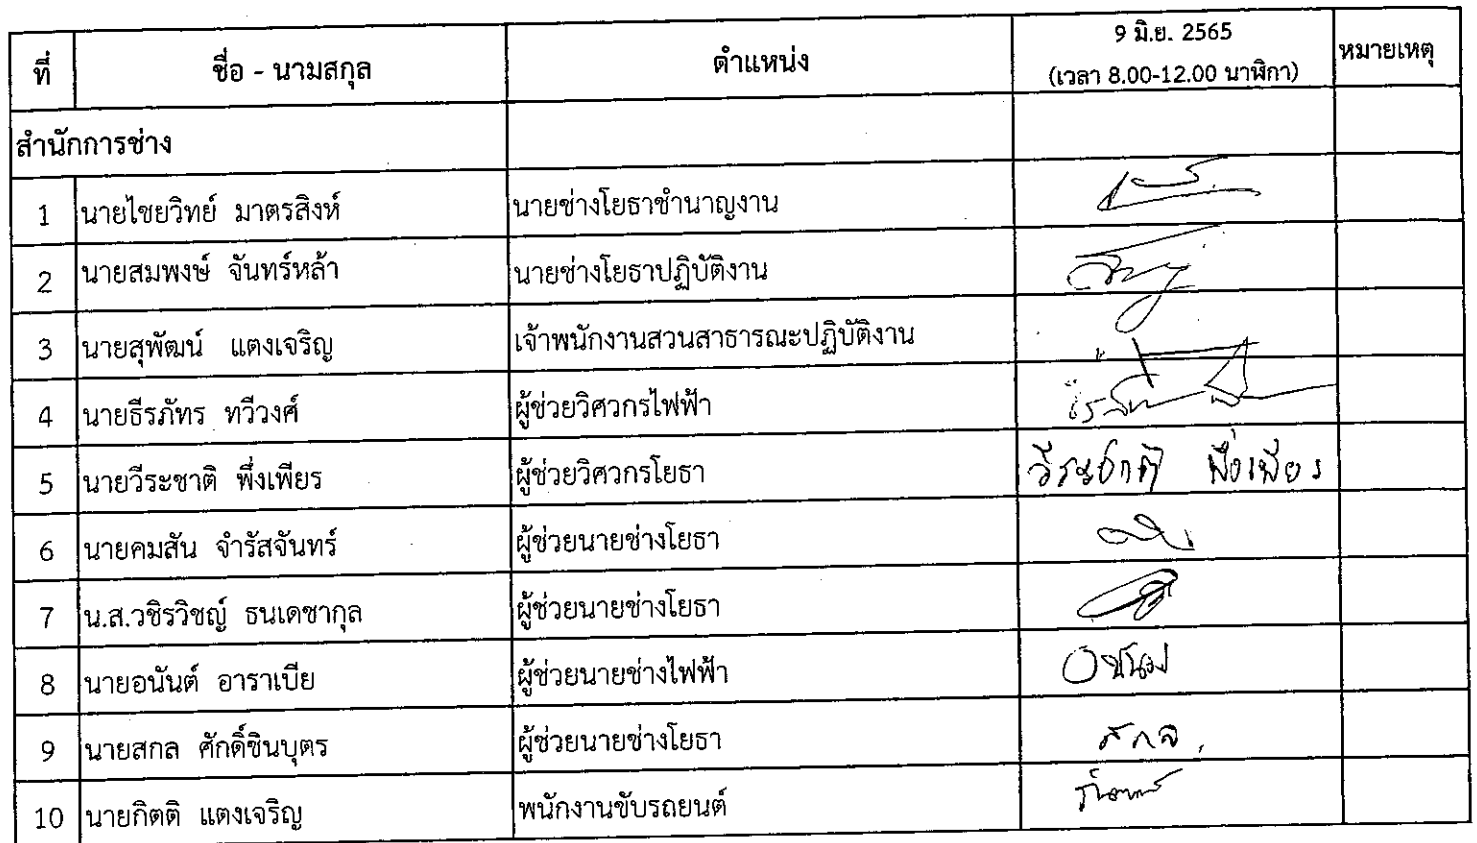 ที่ ชื่อ - นามสกุล ตำแหน่ง 9 มิ.ย. 2565 หมายเหตุ
(เวลา 8.00-12.00 นาฬิกา)
สำนักการช่าง
1 นายไชยวิทย์ มาตรสิงห์ นายช่างโยธาชำนาญงาน
2 นายสมพงษ์ จันทร์หล้า นายช่างโยธาปฏิบัติงาน
3 นายสุพัฒน์ แตงเจริญ เจ้าพนักงานสวนสาธารณะปฏิบัติงาน
4 นายธีรภัทร ทวีวงศ์ ผู้ช่วยวิศวกรไฟฟ้า
5 นายวีระชาติ พึ่งเพียร ผู้ช่วยวิศวกรโยธา วีระชาติ พึ่งเพียร
6 นายคมสัน จำรัสจันทร์ ผู้ช่วยนายช่างโยธา
7 น.ส.วชิรวิชญ์ ธนเดชากุล ผู้ช่วยนายช่างโยธา
8 นายอนันต์ อาราเบีย ผู้ช่วยนายช่างไฟฟ้า
9 นายสกล ศักดิ์ชินบุตร ผู้ช่วยนายช่างโยธา สกล
10 นายกิตติ แตงเจริญ พนักงานขับรถยนต์